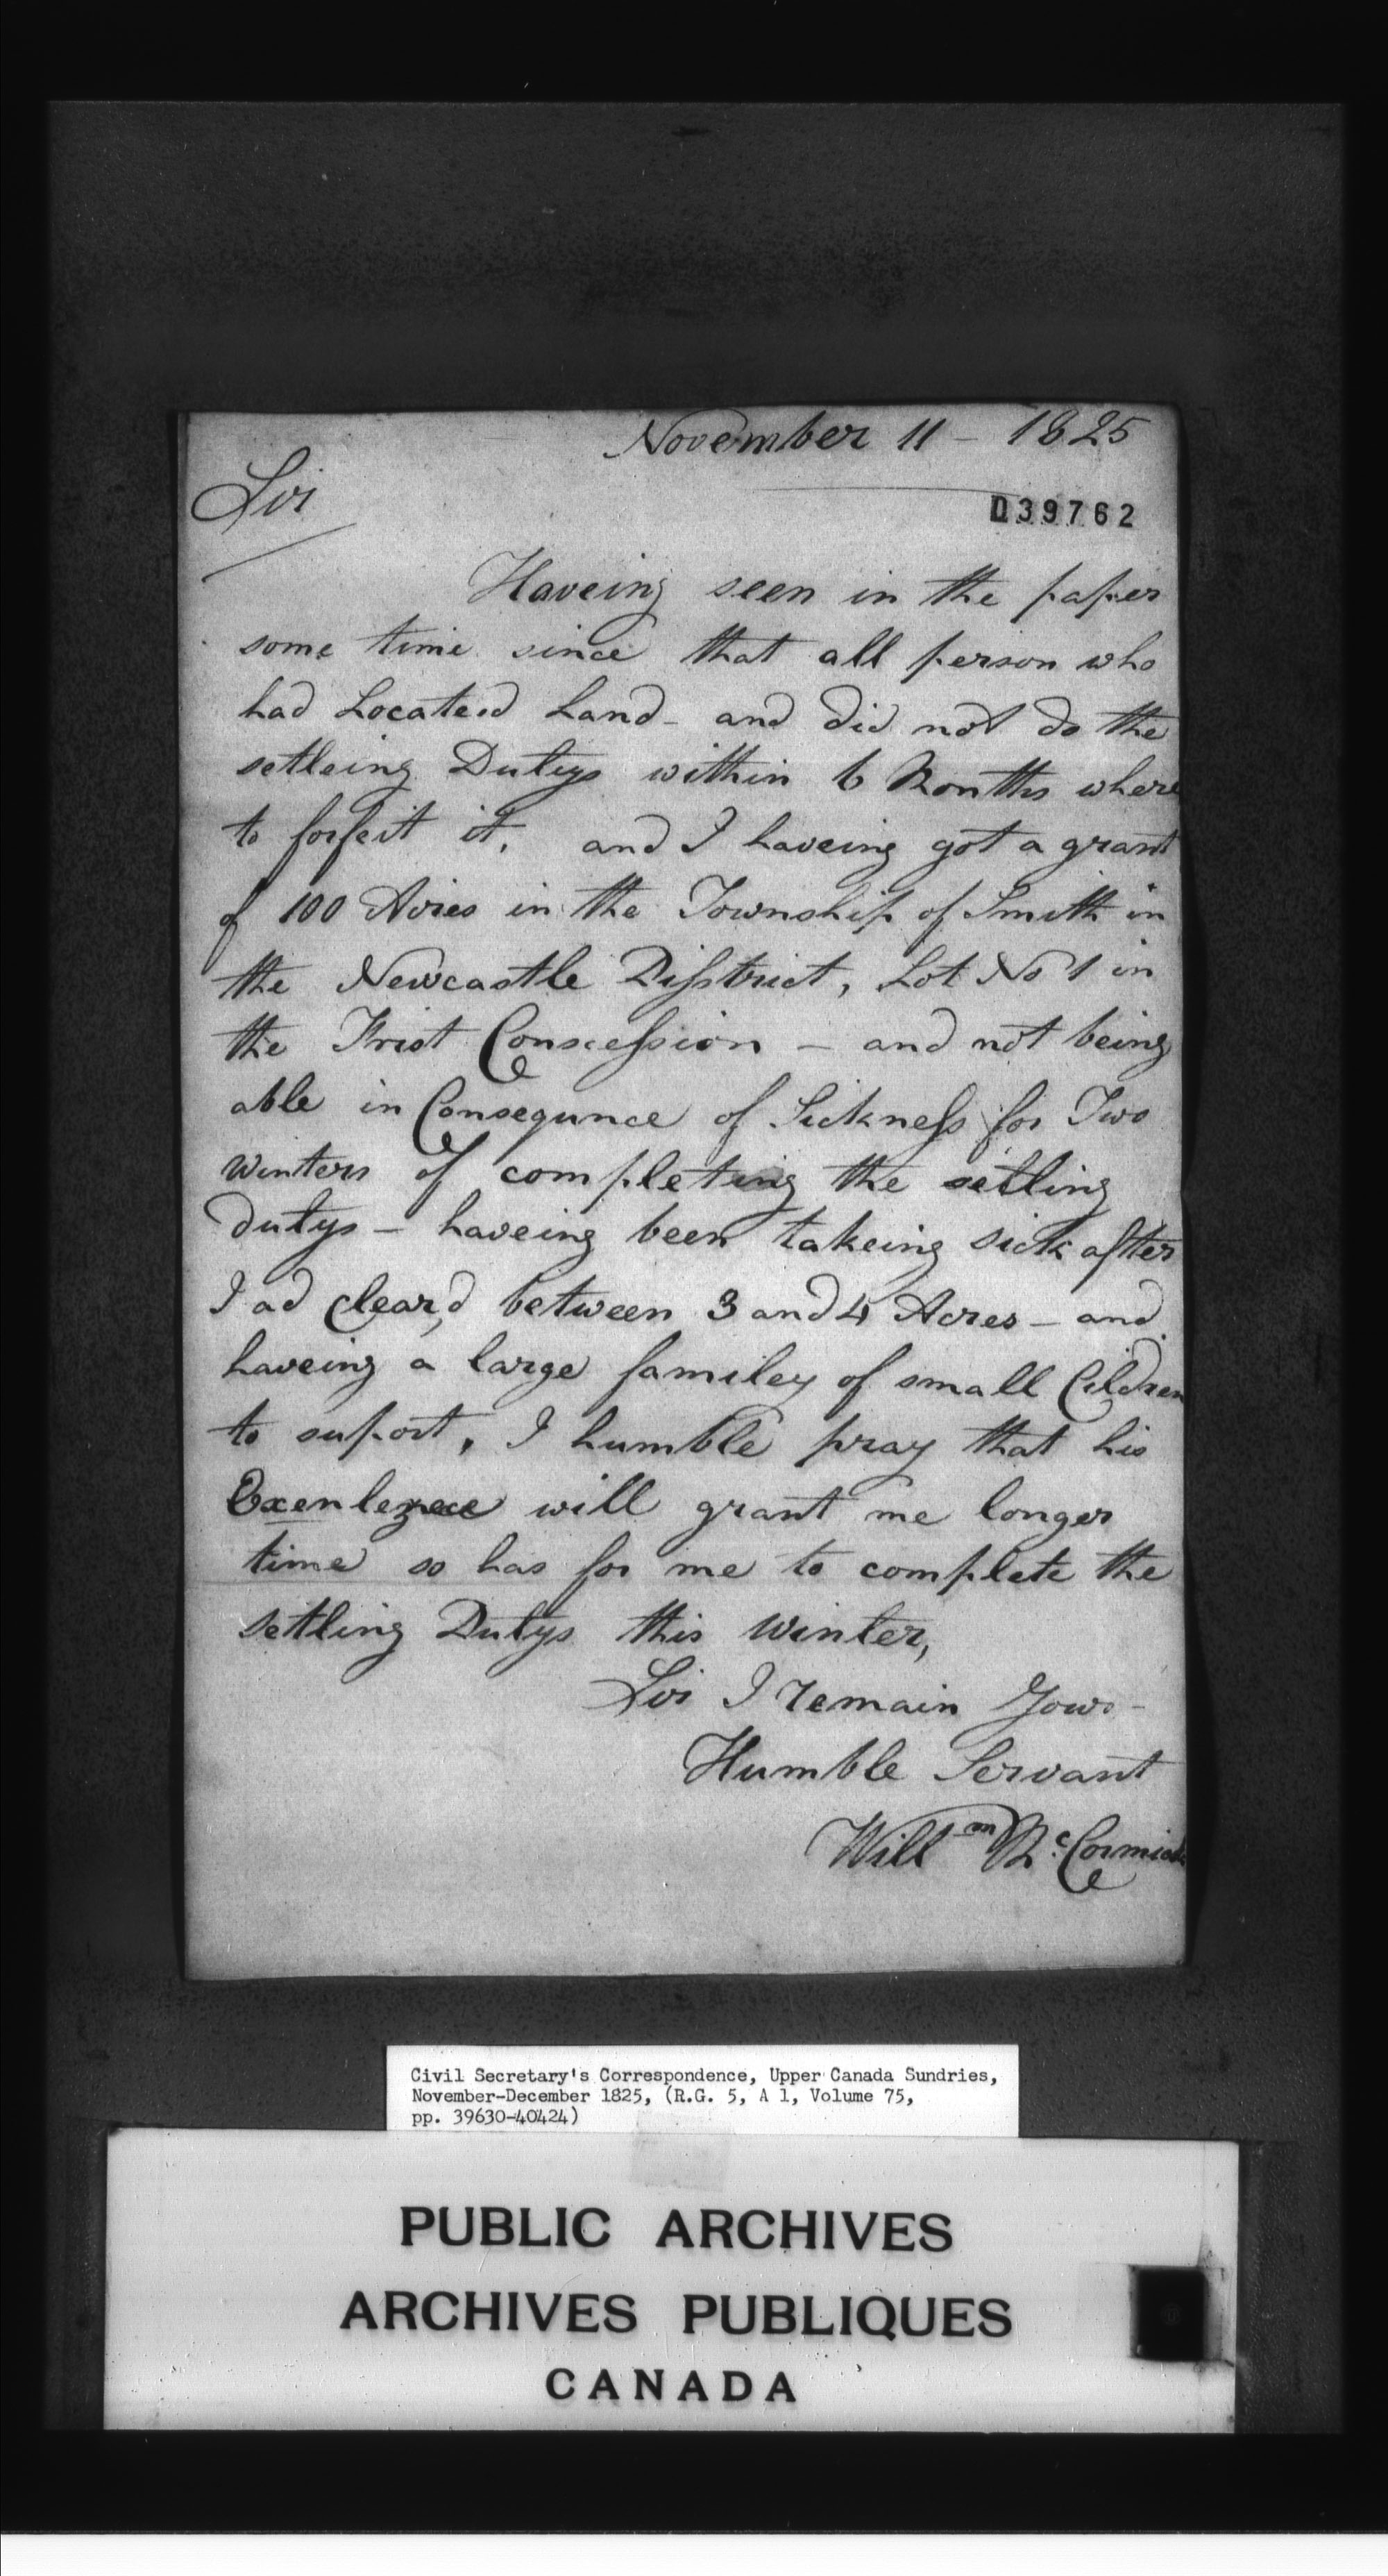 November 11 - 1825
Sir
D39762
Haveing seen in the paper
some time since that all person who
had Located Land - and did not do the
setleing Dutys within 6 Months where
to forfeit it, and I haveing got a grant
of 100 Acres in the Township of Smith in
the Newcastle District, Lot No 1 in
the Frist Conscession - and not being
able in Consequnce of Sickness for Two
Winters of completing the setling
dutys - haveing been takeing sick after
I ad clear,d between 3 and 4 Acres - and
haveing a large familey of small Cildren
to suport, I humble pray that his
will grant me longer
time so has for me to complete the
setling Dutys this Winter,
Sir I remain Yours -
Humble Servant
Willm McCormick
Civil Secretary's Correspondence, Upper Canada Sundries,
November-December 1825, (R.G. 5, A 1, Volume 75,
pp. 39630-40424)
PUBLIC ARCHIVES
ARCHIVES PUBLIQUES
CANADA